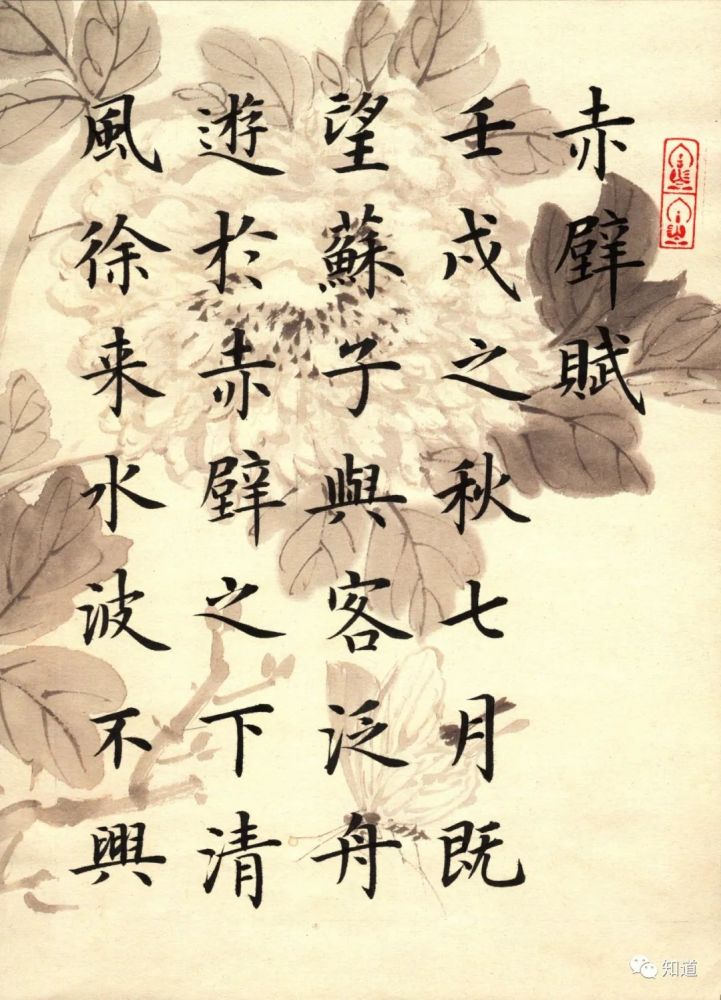 赤壁賦
壬戌之秋七月既
望蘇子與客泛舟
遊於赤壁之下清
風徐来水波不興
知道